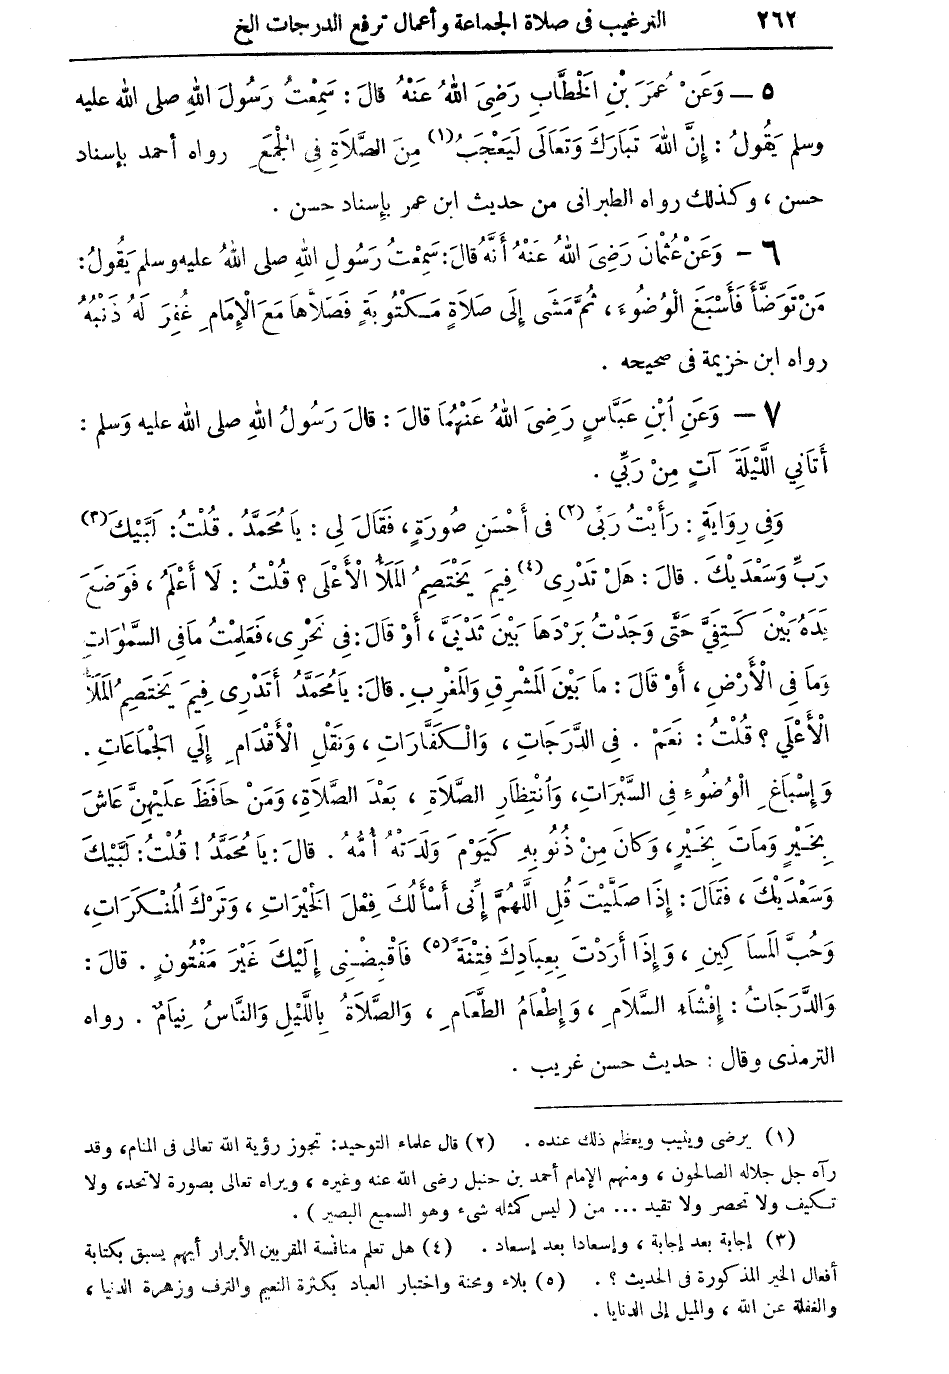 ٢٦٢ الترغيب فى صلاة الجماعة وأعمال ترفع الدرجات الخ
٥ — وَعَنْ عُمَرَ بْنِ الْخَطَّابِ رَضِىَ اللهُ عَنْهُ قالَ : سَمِعْتُ رَسُولَ اللهِ صلى الله عليه
وسلم يَقُولُ : إِنَّ اللهَ تَبَارَكَ وَتَعَالَى لَيَعْجَبُ (١) مِنَ الصَّلاَةِ فِى الْجَمْعِ رواه أحمد بإسناد
حسن ، وكذلك رواه الطبرانى من حديث ابن عمر بإسناد حسن .
٦ — وَعَنْ عُثْمانَ رَضِىَ اللهُ عَنْهُ أَنَّهُ قالَ : سَمِعْتُ رَسُولِ اللهِ صلى اللهُ عليه وسلم يَقُولُ :
مَنْ تَوَضَّأَ فَأَسْبَغَ الْوُضُوءَ ، ثُمَّ مَشَى إِلَى صَلاَةٍ مَكْتُوبَةٍ فَصَلاَّهَا مَعَ الْإِمَامِ غُفِرَ لَهُ ذَنْبُهُ
رواه ابن خزيمة فى صحيحه .
٧ — وَعَنِ ابْنِ عَبَّاسٍ رَضِىَ اللهُ عَنْهُمَا قالَ : قالَ رَسُولُ اللهِ صلى الله عليه وَسلم :
أَتَانِي اللَّيْلَةَ آتٍ مِنْ رَبِّي .
وَفِى رِوَايَةٍ : رَأَيْتُ رَبِّى (٢) فى أَحْسَنِ صُورَةٍ ، فَقَالَ لِى : يَا مُحَمَّدُ . قُلْتُ : لَبَّيْكَ (٣)
رَبِّ وَسَعْدَيْكَ . قالَ : هَلْ تَدْرِى (٤) فِيمَ يَخْتَصِمُ الْمَلَأُ الْأَعْلَى ؟ قُلْتُ : لَا أَعْلَمُ ، فَوَضَعَ
يَدَهُ بَيْنَ كَتِفَيَّ حَتَّى وَجَدْتُ بَرْدَهَا بَيْنَ ثَدْيَيَّ ، أَوْ قَالَ : فى نَحْرِى ، فَعَلِمْتُ مَا فى السَّمٰوَاتِ
وَمَا فِى الْأَرْضِ ، أَوْ قَالَ : مَا بَيْنَ الْمَشْرِقِ وَالْمَغْرِبِ . قالَ : يَا مُحَمَّدُ أَتَدْرِى فِيمَ يَخْتَصِمُ الْمَلَأُ
الْأَعْلَى ؟ قُلْتُ : نَعَمْ . فى الدَّرَجَاتِ ، وَالْكَفَّارَاتِ ، وَنَقْلِ الْأَقْدَامِ إِلَي الْجَمَاعَاتِ .
وَإِسْبَاغِ الْوُضُوءِ فى السَّبْرَاتِ ، وَانْتِظَارِ الصَّلاَةِ ، بَعْدَ الصَّلاَةِ ، وَمَنْ حَافَظَ عَلَيْهِنَّ عَاشَ
بِخَيْرٍ وَمَاتَ بِخَيْرٍ ، وَكَانَ مِنْ ذُنُوبِهِ كَيَوْمَ وَلَدَتْهُ أُمُّهُ . قالَ : يَا مُحَمَّدُ ! قُلْتُ : لَبَّيْكَ
وَسَعْدَيْكَ ، فَقَالَ : إِذَا صَلَّيْتَ قُلِ اللَّهُمَّ إِنِّى أَسْأَلُكَ فِعْلَ الْخَيْرَاتِ ، وَتَرْكَ الْمُنْكَرَاتِ ،
وَحُبَّ الْمَسَاكِينِ ، وَإِذَا أَرَدْتَ بِعِبَادِكَ فِتْنَةً (٥) فَاقْبِضْنِى إِلَيْكَ غَيْرَ مَفْتُونٍ . قالَ :
وَالدَّرَجَاتُ : إِفْشَاءِ السَّلاَمِ ، وَإِطْعَامُ الطَّعَامِ ، وَالصَّلاَةُ بِاللَّيْلِ وَالنَّاسُ نِيَامٌ . رواه
الترمذى وقال : حديث حسن غريب .
(١) يرضى ويثيب ويعظم ذلك عنده . (٢) قال علماء التوحيد : تجوز رؤية الله تعالى فى المنام ، وقد
رآه جل جلاله الصالحون ، ومنهم الإمام أحمد بن حنبل رضى الله عنه وغيره ، ويراه تعالى بصورة لا تحد ، ولا
تكيف ولا تحصر ولا تقيد ... من ( ليس كمثله شىء وهو السميع البصير ) .
(٣) إجابة بعد إجابة ، وإسعادا بعد إسعاد . (٤) هل تعلم منافسة المقربين الأبرار أيهم يسبق بكتابة
أفعال الخير المذكورة فى الحديث ؟ . (٥) بلاء ومحنة واختبار العباد بكثرة النعيم والترف وزهرة الدنيا ،
والغفلة عن الله ، والميل إلى الدنايا .